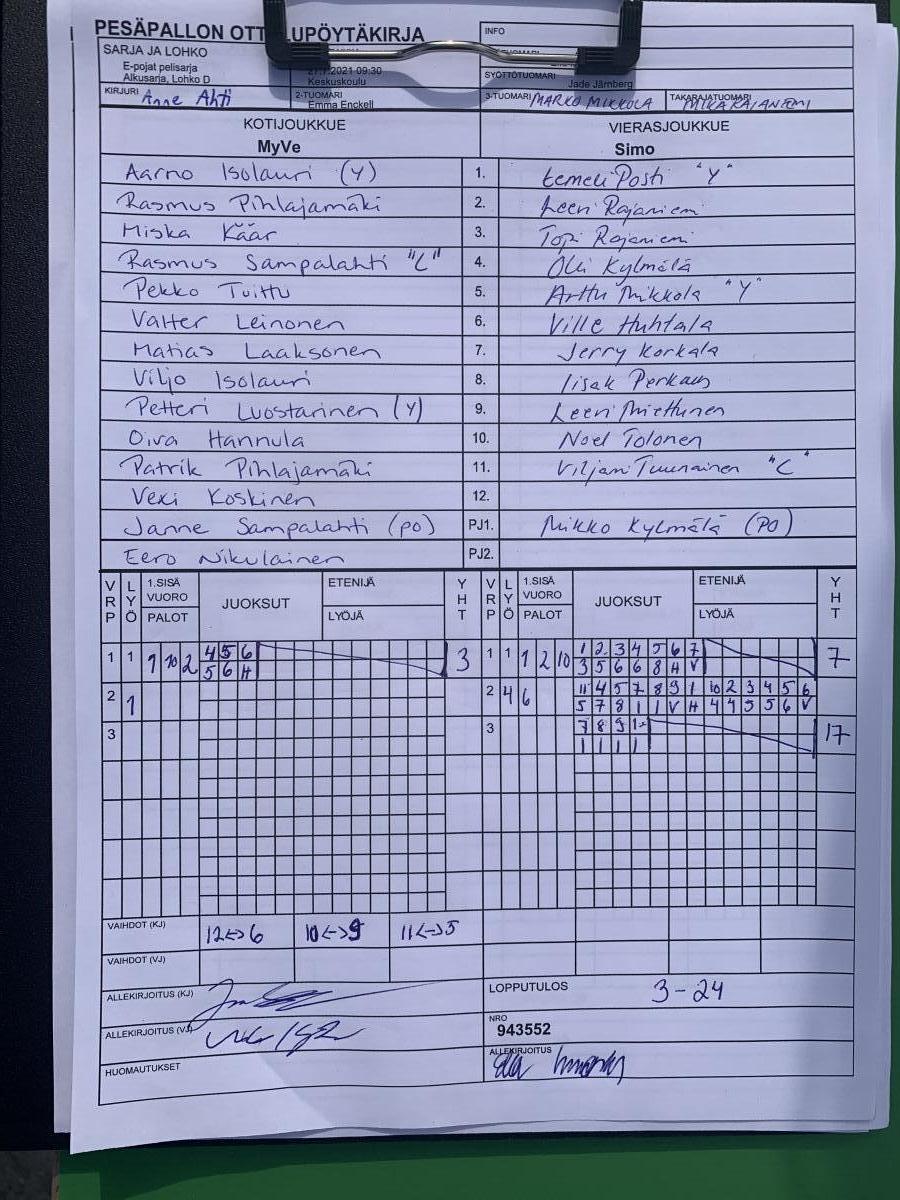 PESÄPALLON OTTELUPÖYTÄKIRJA
INFO
SARJA JA LOHKO
E-pojat pelisarja
Alkusarja, Lohko D
2021 09:30
Keskuskoulu
SYÖTTÖTUOMARI
Jade Järnberg
KIRJURI Anne Ahti
2-TUOMARI
Emma Enckell
3-TUOMARI MARKO MIKKOLA
TAKARAJATUOMARI MIKA RAJANIEMI
KOTIJOUKKUE
MyVe
VIERASJOUKKUE
Simo
Aarno Isolauri (Y) 1. Eemeli Posti "Y"
Rasmus Pihlajamäki 2. Leevi Rajaniemi
Miska Käär 3. Topi Rajaniemi
Rasmus Sampalahti "C" 4. Olli Kylmälä
Pekko Tuittu 5. Arttu Mikkola "Y"
Valter Leinonen 6. Ville Huhtala
Matias Laaksonen 7. Jerry Korkala
Viljo Isolauri 8. Iisak
Petteri Luostarinen (Y) 9. Leevi Miettunen
Oiva Hannula 10. Noel Tolonen
Patrik Pihlajamäki 11. Viljami Tuunainen "C"
Vexi Koskinen 12.
Janne Sampalahti (po) PJ1. Mikko Kylmälä (PO)
Eero Nikulainen PJ2.
VRP LYÖ 1.SISÄ VUORO PALOT JUOKSUT ETENIJÄ LYÖJÄ YHT VRP LYÖ 1.SISÄ VUORO PALOT JUOKSUT ETENIJÄ LYÖJÄ YHT
1 1 1 10 2 4 5 6 3 1 1 1 2 10 1 2 3 4 5 6 7 7
5 6 H 3 5 6 6 8 H V
2 1 2 4 6 11 4 5 7 8 9 1 10 2 3 4 5 6
5 7 8 1 1 V H 4 4 5 5 6 V
3 3 7 8 9 1 17
1 1 1 1
VAIHDOT (KJ) 12<->6 10<->9 11<->5
VAIHDOT (VJ)
ALLEKIRJOITUS (KJ)
LOPPUTULOS 3-24
ALLEKIRJOITUS (VJ)
NRO
943552
HUOMAUTUKSET
ALLEKIRJOITUS